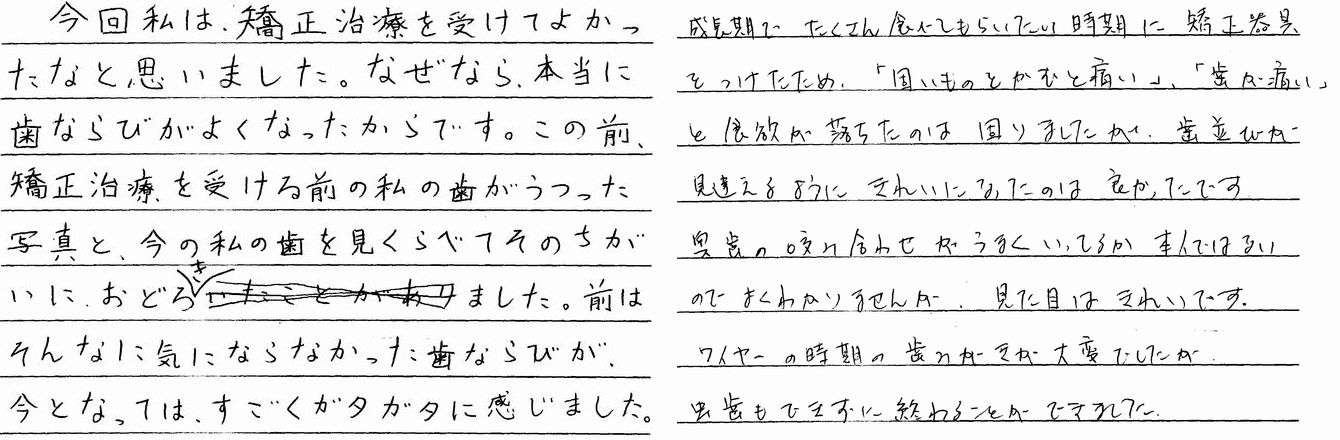 今回私は、矯正治療を受けてよかっ
たなと思いました。なぜなら、本当に
歯ならびがよくなったからです。この前、
矯正治療を受ける前の私の歯がうつった
写真と、今の私の歯を見くらべてそのちが
いに、おどろきました。前は
そんなに気にならなかった歯ならびが、
今となっては、すごくガタガタに感じました。
成長期で たくさん食べてもらいたい時期に 矯正器具
をつけたため、「固いものをかむと痛い」、「歯が痛い」
と食欲が落ちたのは困りましたが、歯並びが
見違えるように きれいになったのは 良かったです
奥歯の咬み合わせがうまくいってるか 本人ではない
ので よくわかりませんが、見た目は きれいです。
ワイヤーの時期の歯みがきが大変でしたが
虫歯もできずに終わることができました。